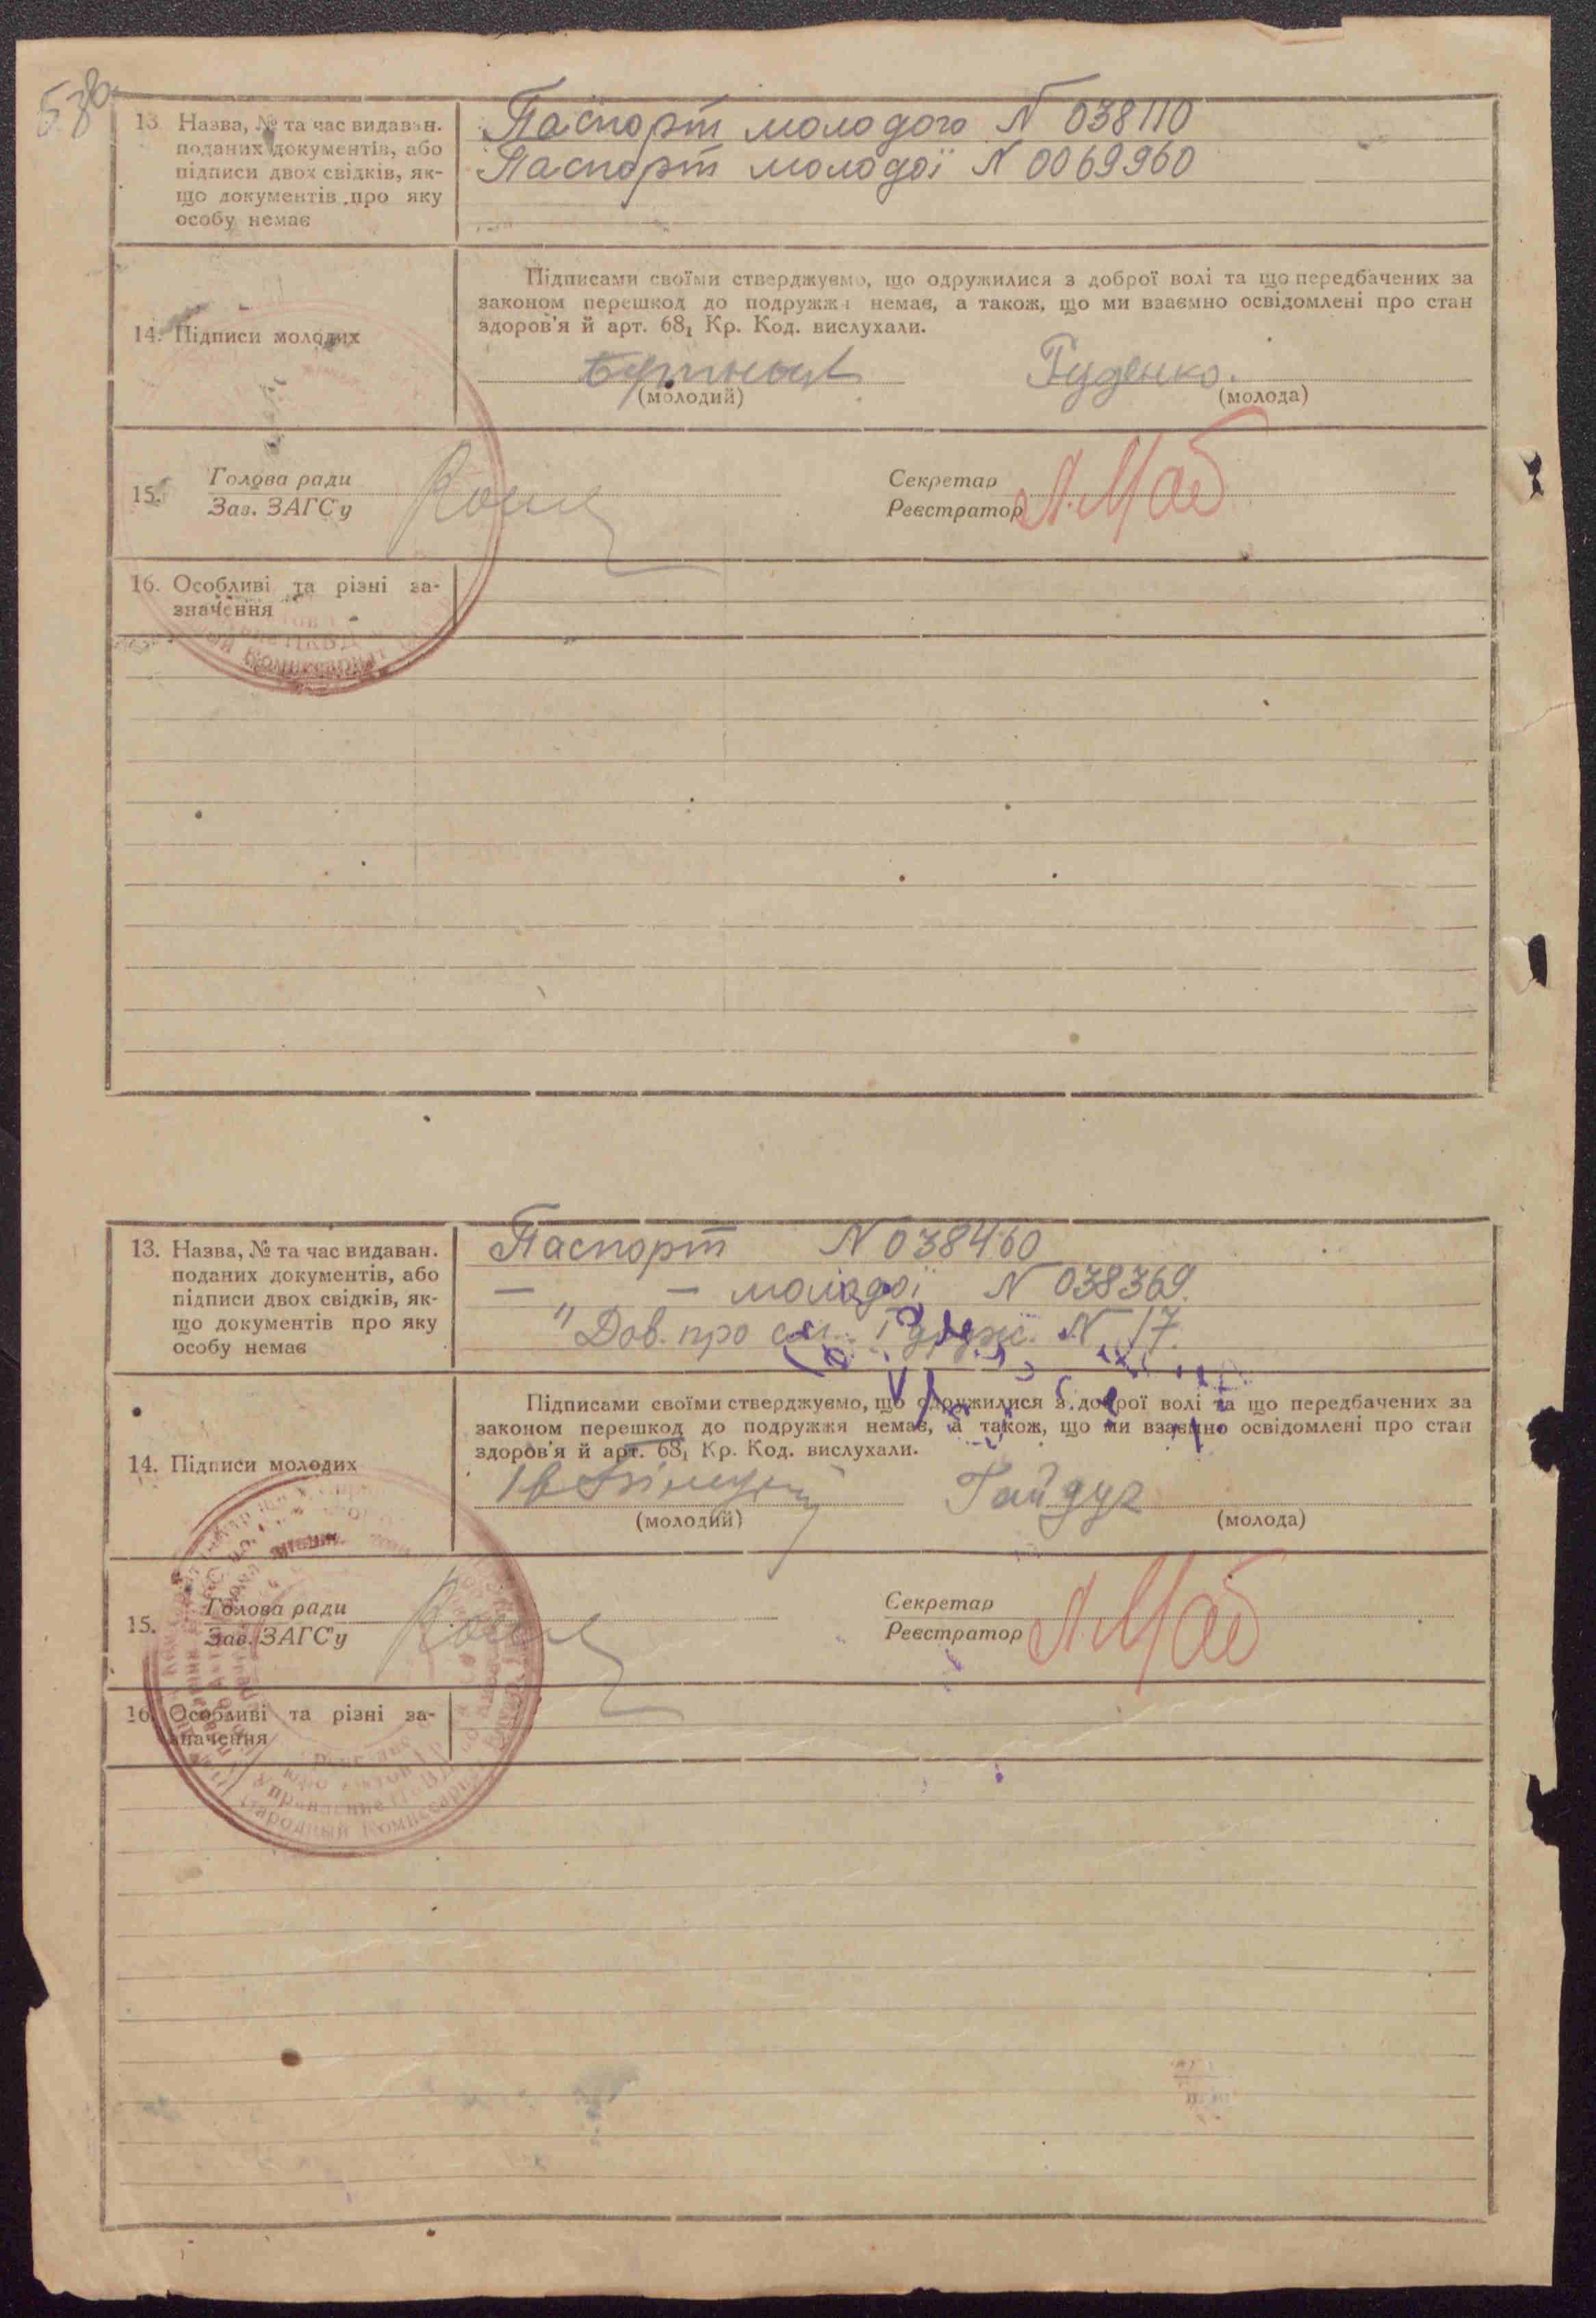 13. Назва, № та час видаван.
поданих документів, або
підписи двох свідків, як-
що документів про яку
особу немає
Паспорт молодого N 038110
Паспорт молодої N 0069960
14. Підписи молодих
Підписами своїми стверджуємо, що одружилися з доброї волі та що передбачених за
законом перешкод до подружжя немає, а також, що ми взаємно освідомлені про стан
здоров'я й арт. 68₁ Кр. Код. вислухали.
Руденко.
(молодий) (молода)
15. Голова ради
Зав. ЗАГСу
Секретар
Реєстратор
16. Особливі та різні за-
значення
13. Назва, № та час видаван.
поданих документів, або
підписи двох свідків, як-
що документів про яку
особу немає
Паспорт N 038460
— — молодої N 038369.
" Дов. про N 17.
14. Підписи молодих
Підписами своїми стверджуємо, що одружилися з доброї волі та що передбачених за
законом перешкод до подружжя немає, а також, що ми взаємно освідомлені про стан
здоров'я й арт. 68₁ Кр. Код. вислухали.
Гайдук
(молодий) (молода)
15. Голова ради
Зав. ЗАГСу
Секретар
Реєстратор
16. Особливі та різні за-
значення
Народный Комиссариат